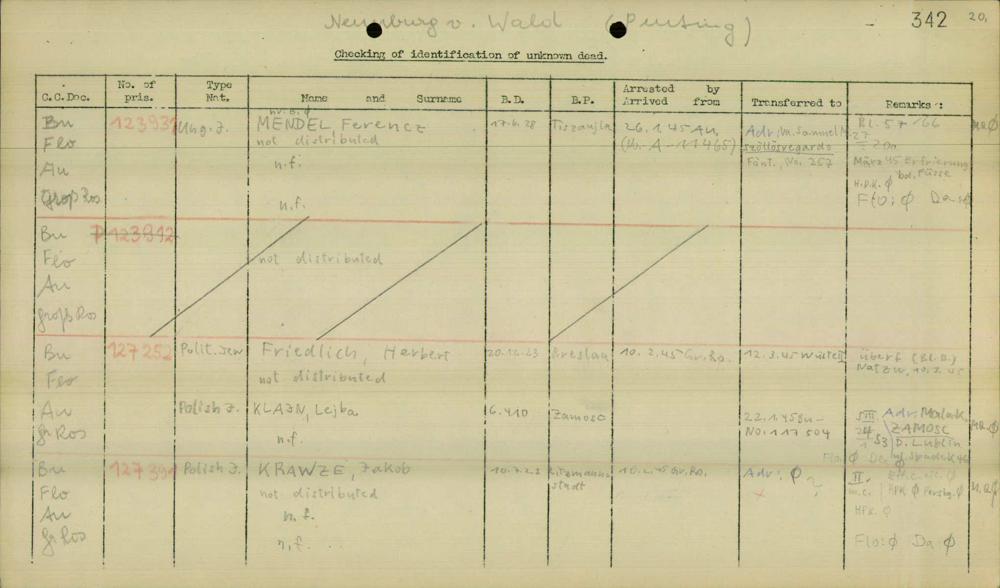 Neunburg v. Wald (Penting) - 342 20.
Checking of identification of unknown dead.
C.C.Doc. No. of pris. Type Nat. Name and Surname B.D. B.P. Arrested by Arrived from Transferred to Remarks :
Bu 123937 Ung. J. MENDEL, Ferencz 17.6.28 26.1.45 Au.
Flo not distributed (No. A-11465)
Au n.f. März 45 Erfrierung
bd. Füsse
H.P.K. Ø
Groß Ros n.f. Flo: Ø Da Ø
Bu 123942
Flo not distributed
Au
groß Ros
Bu 127252 Polit. Jew Friedlich, Herbert Breslau 10.2.45 Gr. Ro. überf (Bu.)
Flo not distributed Natzw.
Au Polish J. KLAJN, Lejba 6.4.10 Zamosc 22.1.45 Bu- Adr: Malark.
gr Ros n.f. No. 117504 ZAMOSC
D. Lublin
Flo Ø Da Ø
Bu 127391 Polish J. KRAWZE, Jakob 10.7.23 Litzmann- 10.2.45 Gr. Ro. Adr: Ø II.
stadt
Flo not distributed HPK Ø
Au n.f. HPK. Ø
gr Ros n.f. Flo: Ø Da Ø